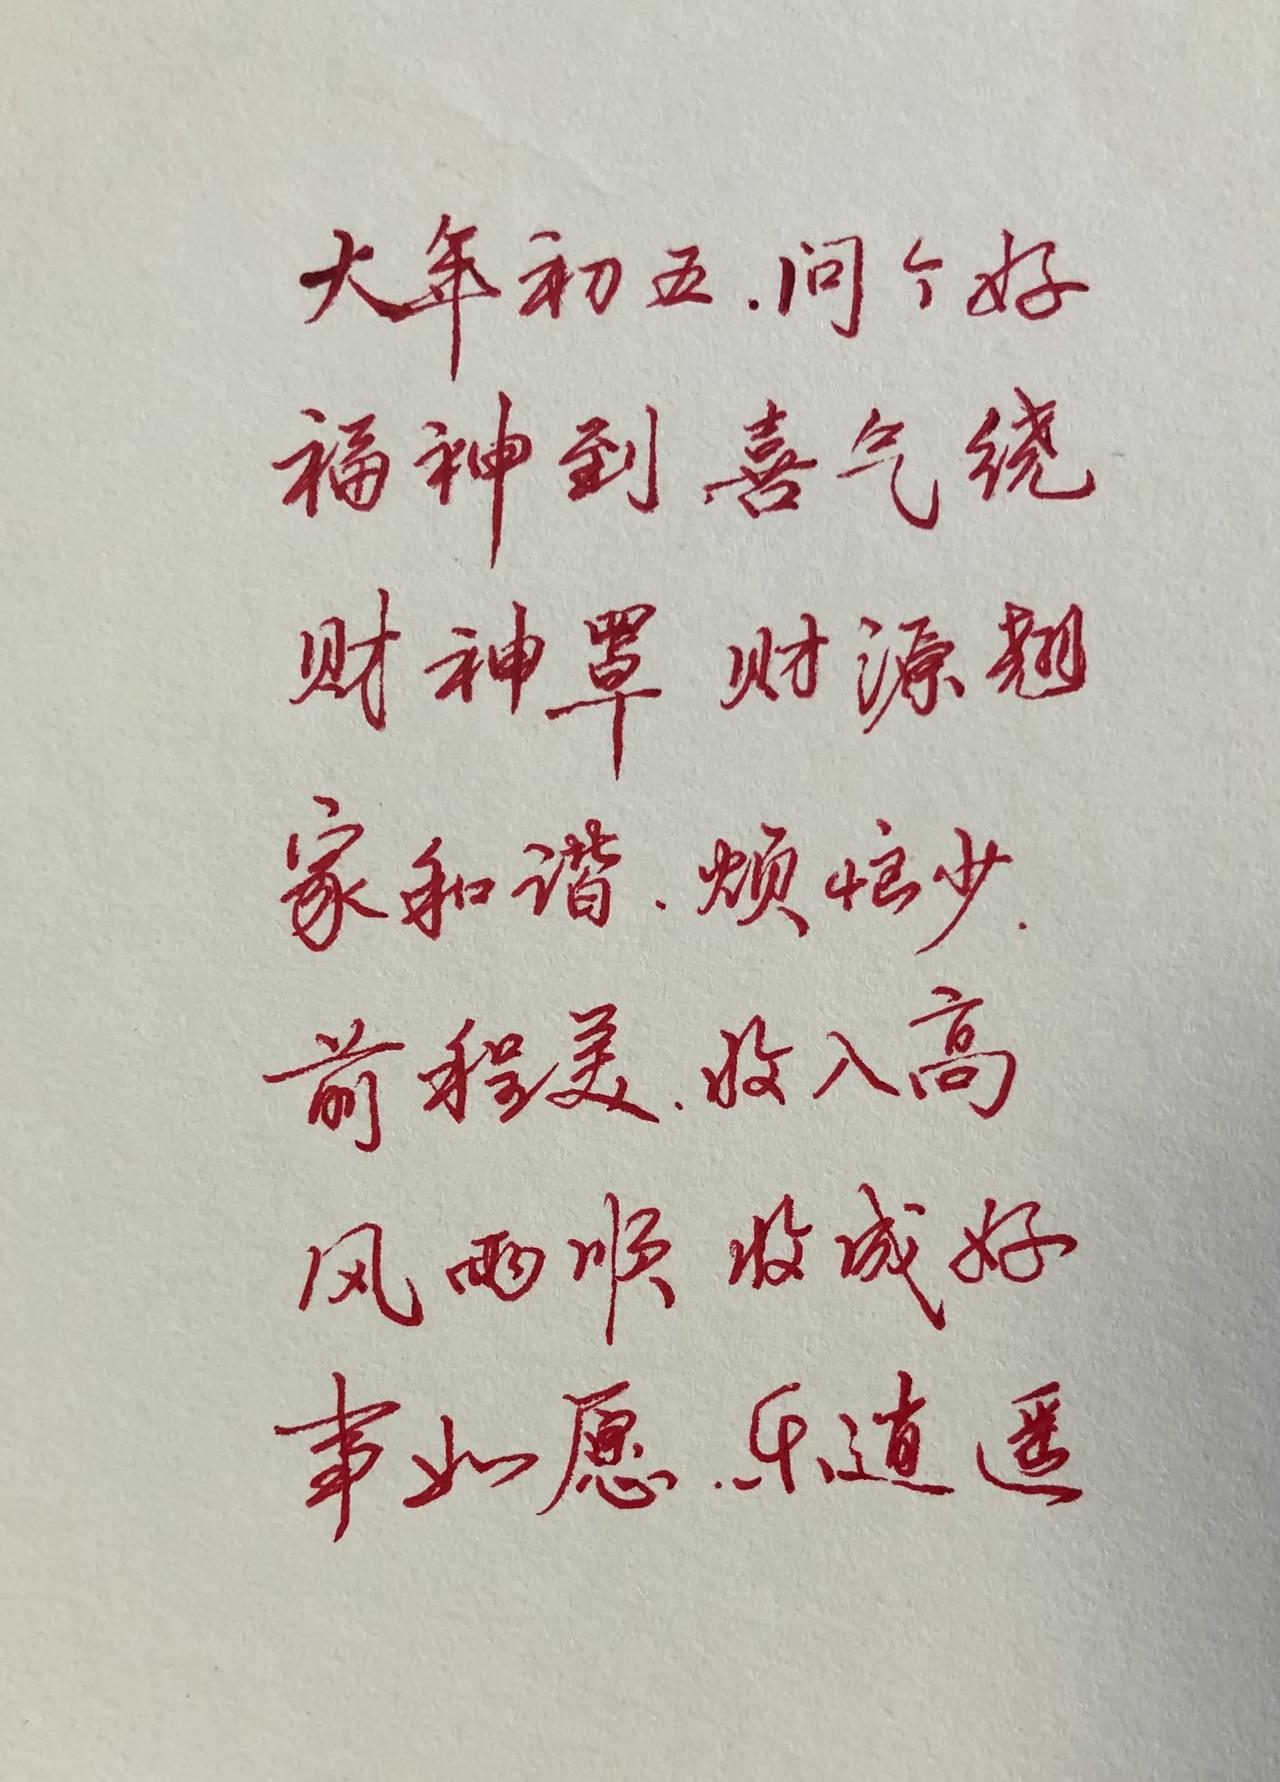 大年初五.问个好
福神到 喜气绕
财神罩 财源翘
家和谐.烦恼少.
前程美.收入高
风雨顺 收成好
事如愿.乐逍遥